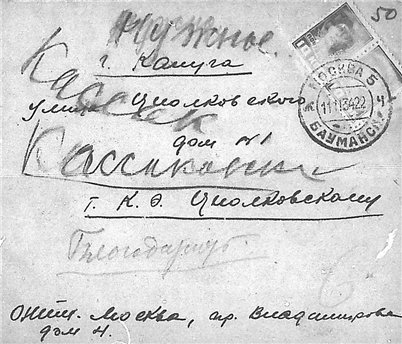 50
Нужное.
г. Калуга
улица Циолковского
дом №1
г. К. Э. Циолковскому
Благодарить.
МОСКВА 6
11 11 34 22
Ч
БАУМАНСК.
Отпр. Москва, пр. Владимирова
дом 4.